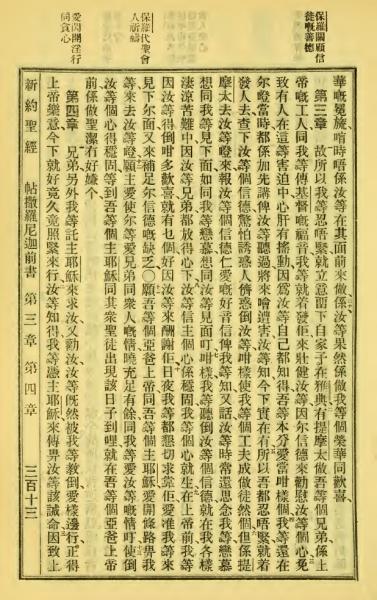 保羅關顧信
徒嘅善德
保羅代聖會
人祈禱
愛閃開淫行
同貪心
華嘅冕旒唔時唔係汝等在其面前來做係汝等果然係做我等個榮華同歡喜
第三章 故所以我等忍唔緊就立意留下自家子在雅典有提摩太做吾等個兄弟係上
帝嘅工人同我等傳基督嘅福音我等就着發佢來壯健汝等因尔信德來勸慰汝等個心免
致有人在這等害迫中心肝有搖動因爲汝等自己都知得吾等本分愛當咁樣個我等還在
尔嶝當時都係加先講俾汝等聽過將來噲遭害汝等知今下實在有所以吾都忍唔緊就着
發人去查下汝等個信德驚怕誘惑人儕惑倒汝等咁樣使我等個工夫成做徒然個但係提
摩太去汝等嶝來報汝等個信德仁愛嘅好音信俾我等知又話汝等時常還思念我等戀慕
想同我等見下面如同我等戀慕想同汝等見面叮咁樣我等聽倒汝等個信德就在我各樣
淒涼苦難中因汝等兄弟都放得心下汝等信主個心係穩固我等個心就生在上帝前我等
因汝等得倒咁多歡喜就有乜個好因汝等來酬謝佢日夜我等都懇切求靠佢愛准我等來
見下尔面又來補足尔信德嘅缺乏〇願吾等個亞爸上帝同吾等個主耶穌愛開條路畀我
等來去汝等嶝願主愛使尔等愛兄弟同衆人嘅情曉充足有餘同我等愛汝等嘅情吁使倒
汝等個心得穩固等到吾等個主耶穌同其衆聖徒出現該日子到哩就在吾等個亞爸上帝
前係做聖潔有好嫌个
第四章 兄弟另外我等託主耶穌來求汝又勸汝汝等既然被我等教倒愛樣邊行正得
上帝樂意今下就好竟久竟照緊來行汝等知得我等憑主耶穌來傳畀汝等該誡命因致上
新約聖經 帖撒羅尼迦前書 第三章 第四章 三百十三